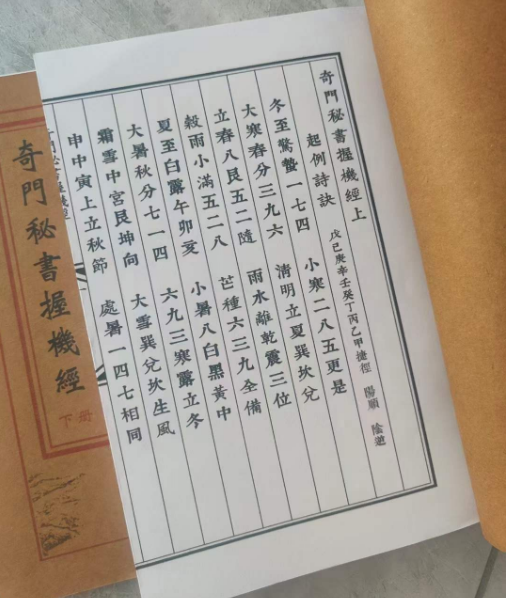 奇門秘書握機經上
起例詩訣 戊己庚辛壬癸丁丙乙甲捷徑 陽順 陰逆
冬至驚蟄一七四 小寒二八五更是
大寒春分三九六 清明立夏巽坎兌
立春八艮五二隨 雨水離乾震三位
穀雨小滿五二八 芒種六三九全備
夏至白露午卯亥 小暑八白黑黃中
大暑秋分七一四 六九三寒露立冬
霜雪中宮艮坤向 大雪巽兌坎生風
申中寅上立秋節 處暑一四七相同
奇門秘書握機經
奇門秘書握機經
下册